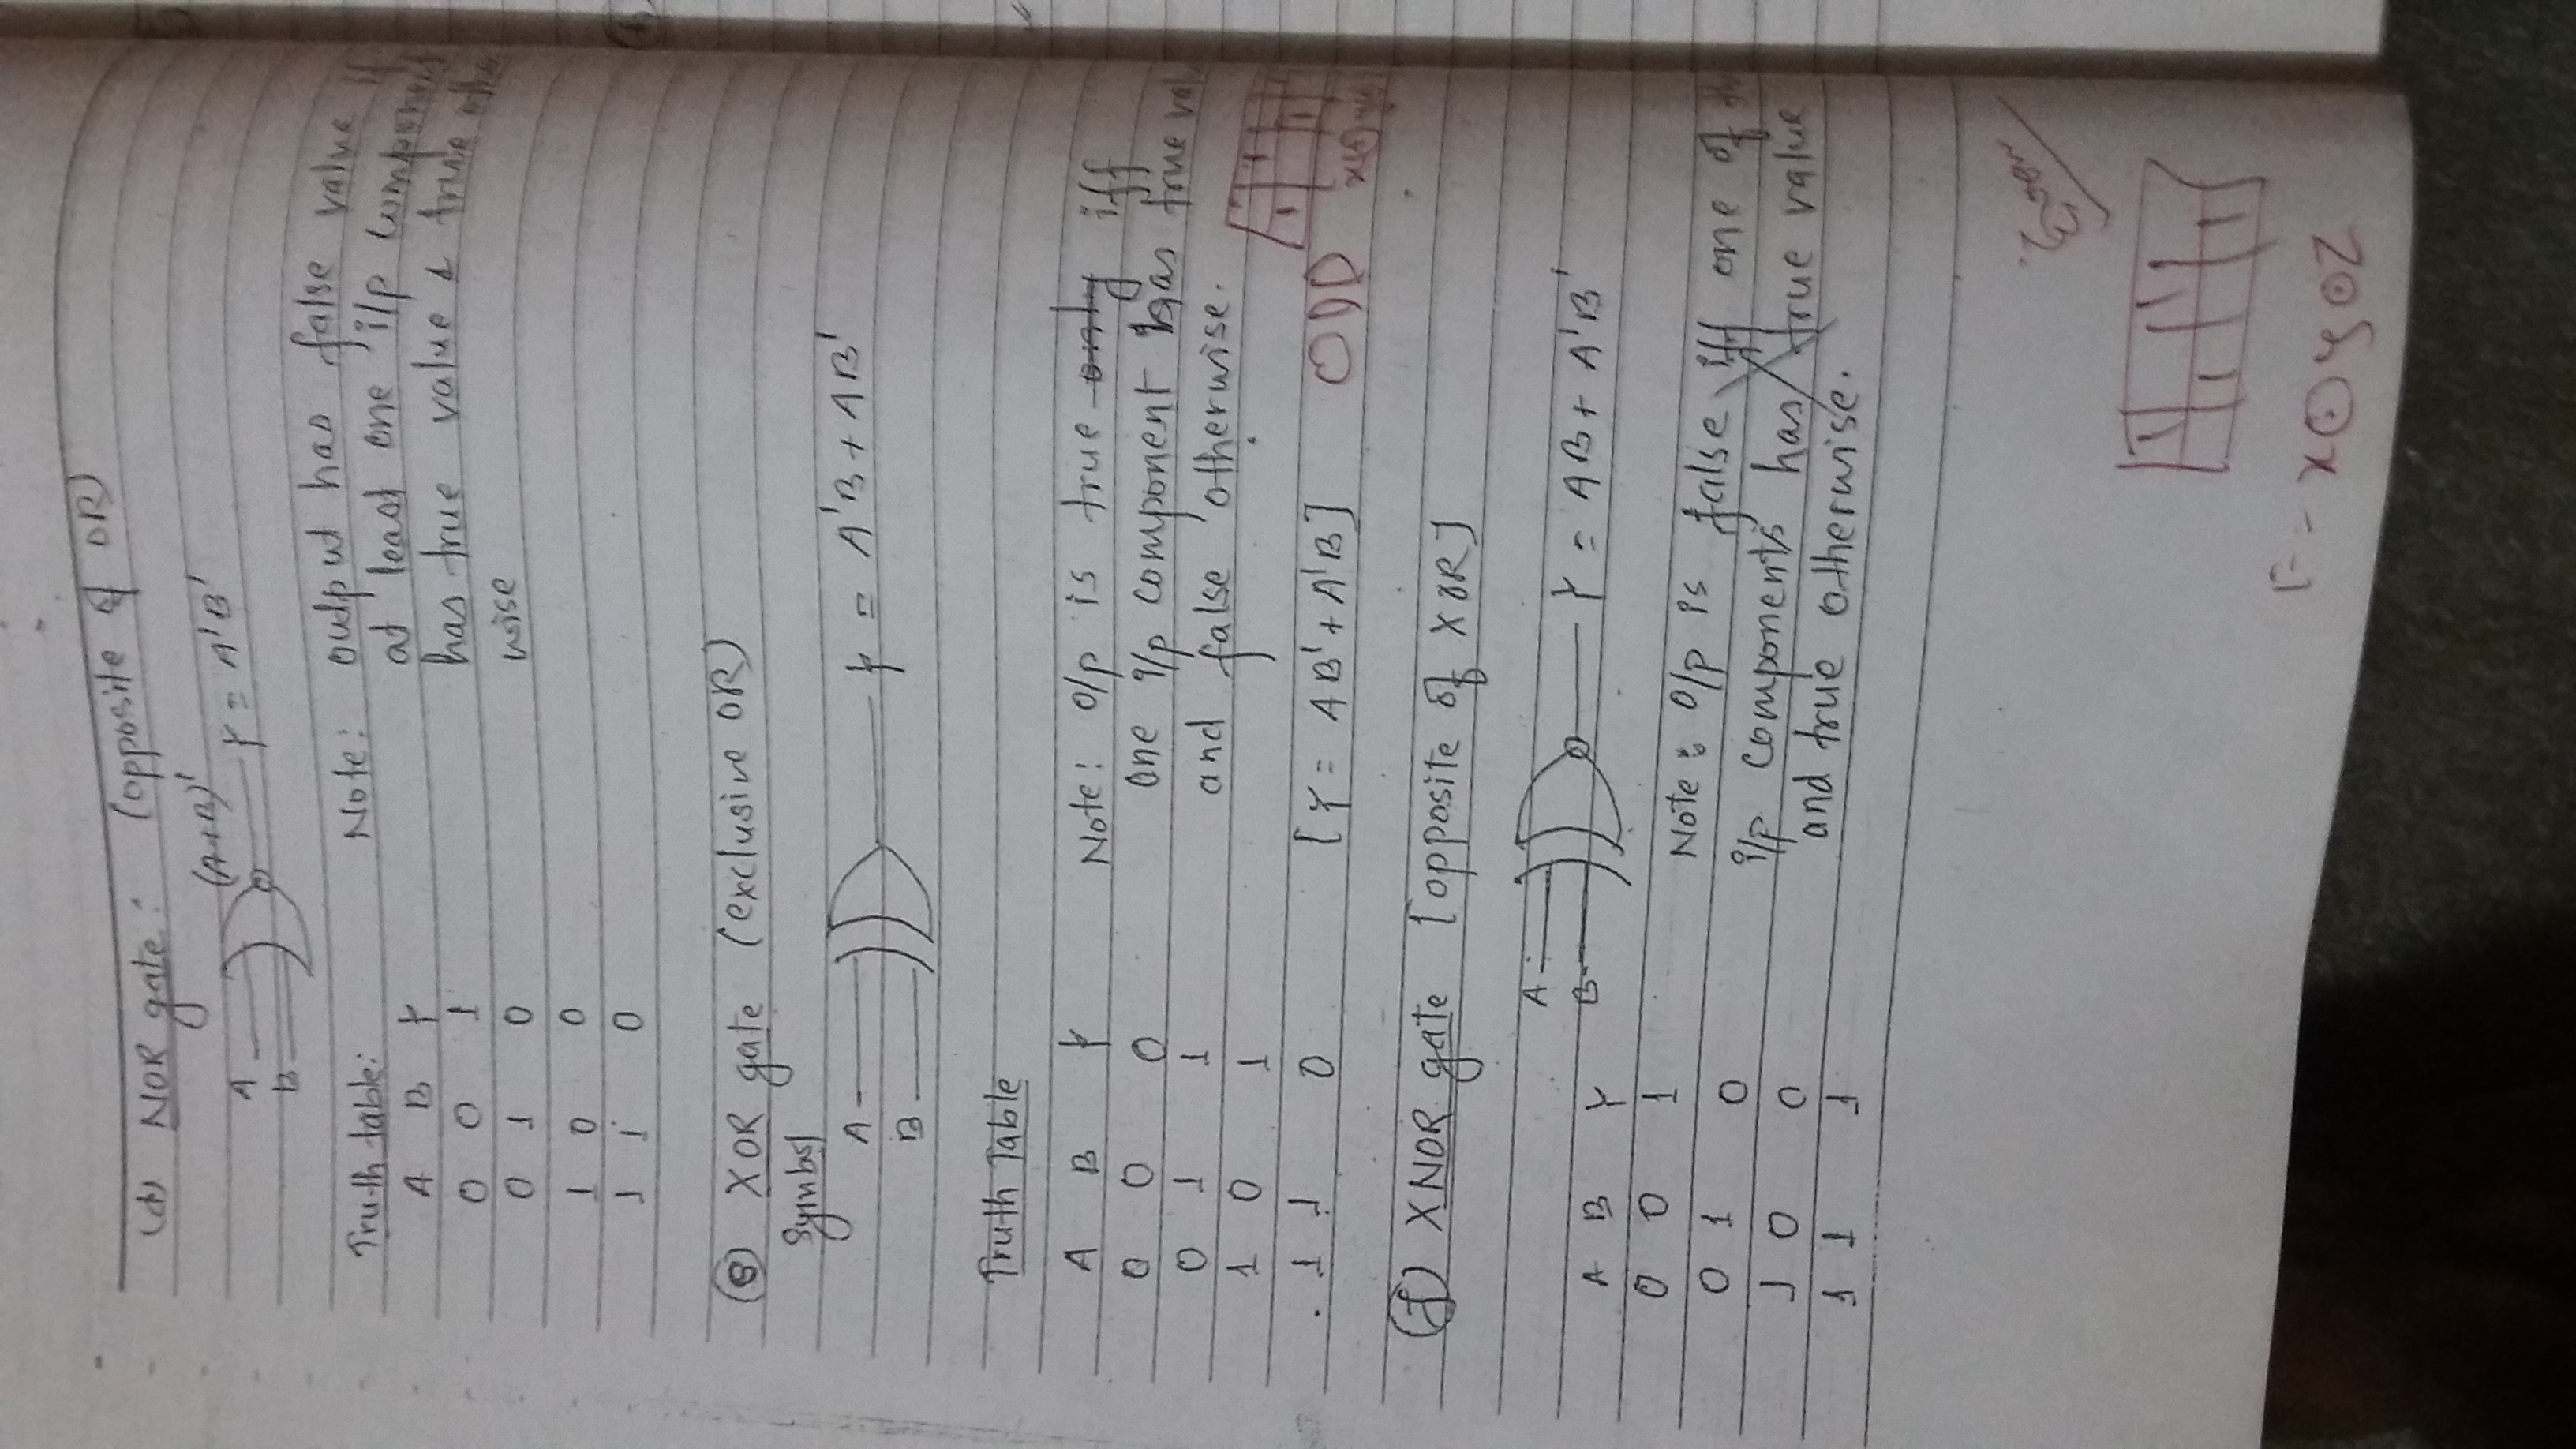 (d) NOR gate: (opposite of OR)
(A+B)'
A
B
Y = A'B'
Truth table:
A B Y
0 0 1
0 1 0
1 0 0
1 1 0
Note: output has false value if
at least one i/p component
has true value & true other
wise
(e) XOR gate (exclusive OR)
Symbol
A
B
Y = A'B + AB'
Truth Table
A B Y
0 0 0
0 1 1
1 0 1
1 1 0
Note: o/p is true only iff
one i/p component has true
and false otherwise.
[Y = AB' + A'B]
ODD
(f) XNOR gate [opposite of XOR]
A
B
Y = AB + A'B'
A B Y
0 0 1
0 1 0
1 0 0
1 1 1
Note: o/p is false iff one of
i/p components has true value
and true otherwise.
Even
1 1
1 1
F = x⊙y⊙z